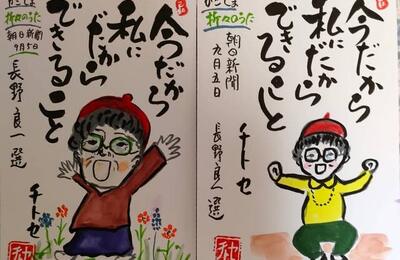 今だから
私にだから
できること
かごしま
折々のうた
朝日新聞
9月5日
長野良一選
チトセ
今だから
私にだから
できること
かごしま
折々のうた
朝日新聞
九月五日
長野良一選
チトセ